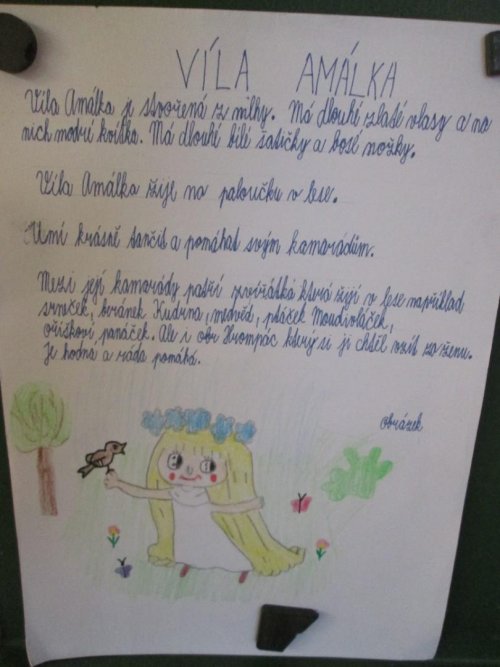 VÍLA AMÁLKA
Víla Amálka je stvořená z mlhy. Má dlouhé zlaté vlasy a na
nich modrá kvítka. Má dlouhé bílé šatičky a bosé nožky.
Víla Amálka žije na paloučku v lese.
Umí krásně tančit a pomáhat svým kamarádům.
Mezi její kamarády patří zvířátka která žijí v lese například
srneček, beránek Kudrna, medvěd, ptáček Moudivláček,
oříškoví panáček. Ale i obr Hrompác který si ji chtěl vzít za ženu.
Je hodná a ráda pomáhá.
obrázek